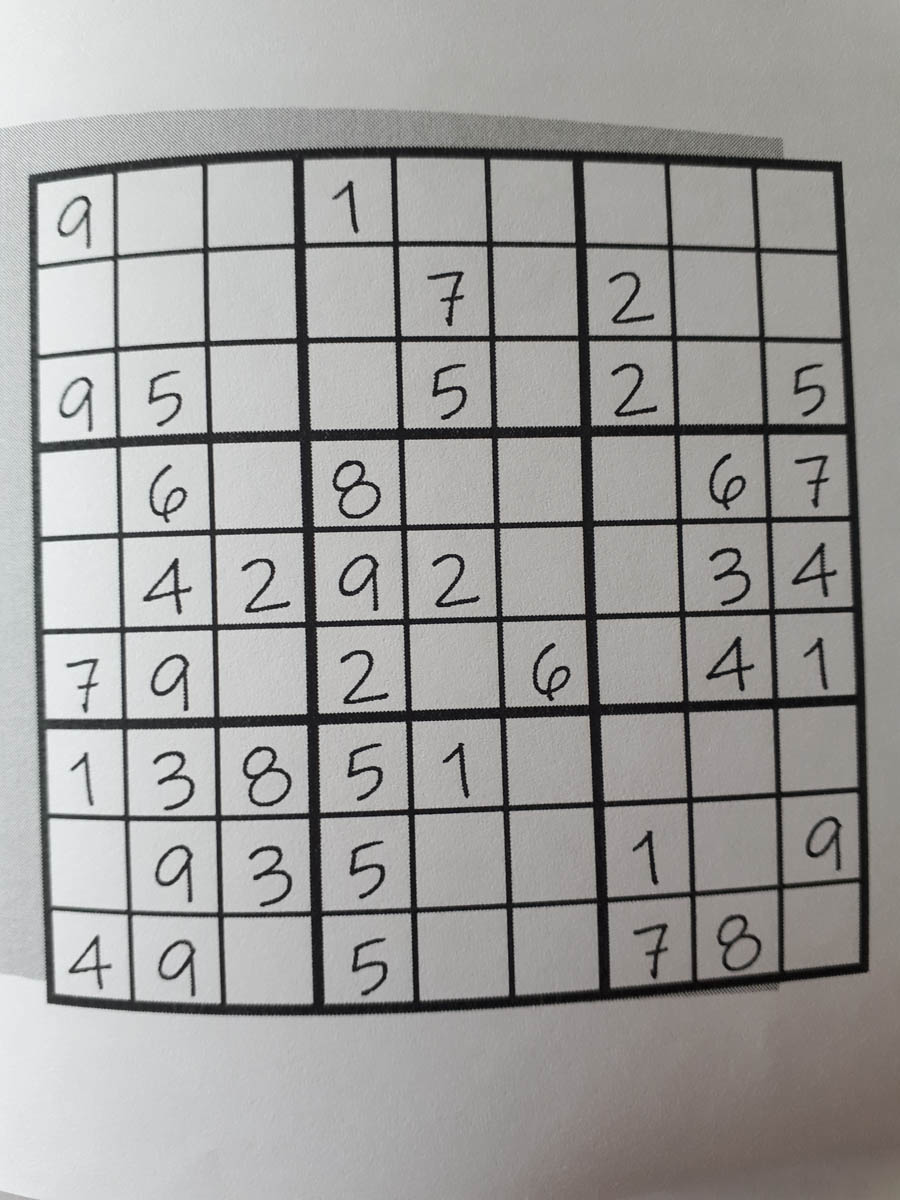 9 1
7 2
9 5 5 2 5
6 8 6 7
4 2 9 2 3 4
7 9 2 6 4 1
1 3 8 5 1
9 3 5 1 9
4 9 5 7 8